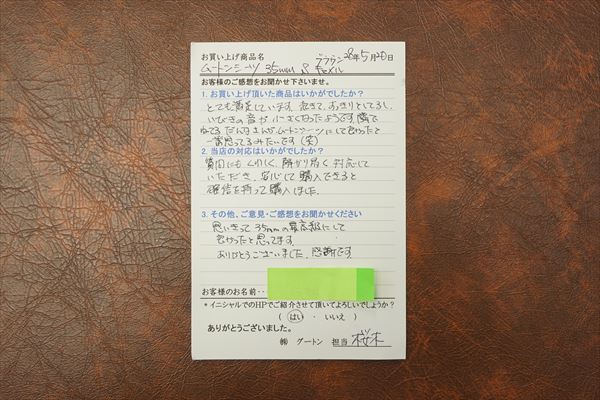 お買い上げ商品名
ムートンシーツ 35mm ダブル キャメル 28年5月20日
お客様のご感想をお聞かせ下さいませ。
1. お買い上げ頂いた商品はいかがでしたか?
とても満足しています。起きて、すっきりとしてるし、
いびきの音が小さくなったようです。隣で
ねてるだんなさんがムートンシーツにして良かったと
一番思ってるみたいです(笑)
2. 当店の対応はいかがでしたか?
質問にもくわしく、解かり易く対応して
いただき、安心して購入できると
確信を持って購入しました。
3. その他、ご意見・ご感想をお聞かせください
思いきって35mmの最高級にして
良かったと思ってます。
ありがとうございました。感謝です
お客様のお名前・・
*イニシャルでのHPでご紹介させて頂いてよろしいでしょうか?
( はい ・ いいえ )
ありがとうございました。
㈱ グートン 担当 桜木